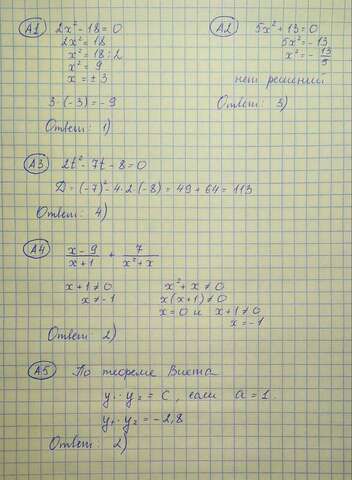 А1 2x² - 18 = 0
2x² = 18
x² = 18 : 2
x² = 9
x = ± 3
3 · (-3) = -9
Ответ: 1)
А2 5x² + 13 = 0
5x² = -13
x² = - 13/5
нет решений
Ответ: 3)
А3 2t² - 7t - 8 = 0
D = (-7)² - 4 · 2 (-8) = 49 + 64 = 113
Ответ: 4)
А4 x - 9 / x + 1 + 7 / x² + x
x + 1 ≠ 0
x ≠ -1
x² + x ≠ 0
x(x + 1) ≠ 0
x = 0 и x + 1 ≠ 0
x = -1
Ответ: 2)
А5 По теореме Виета
y₁ · y₂ = C, если a = 1.
y₁ · y₂ = -2,8
Ответ: 2)